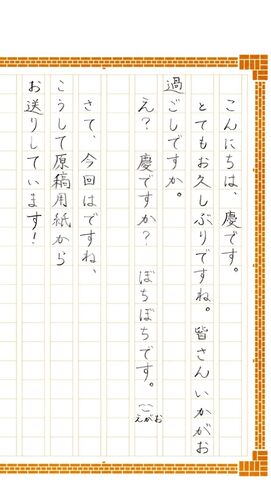 こんにちは、慶です。
とてもお久しぶりですね。皆さんいかがお
過ごしですか。
え？　慶ですか？　ぼちぼちです。
えがお
さて、今回はですね、
こうして原稿用紙から
お送りしています！